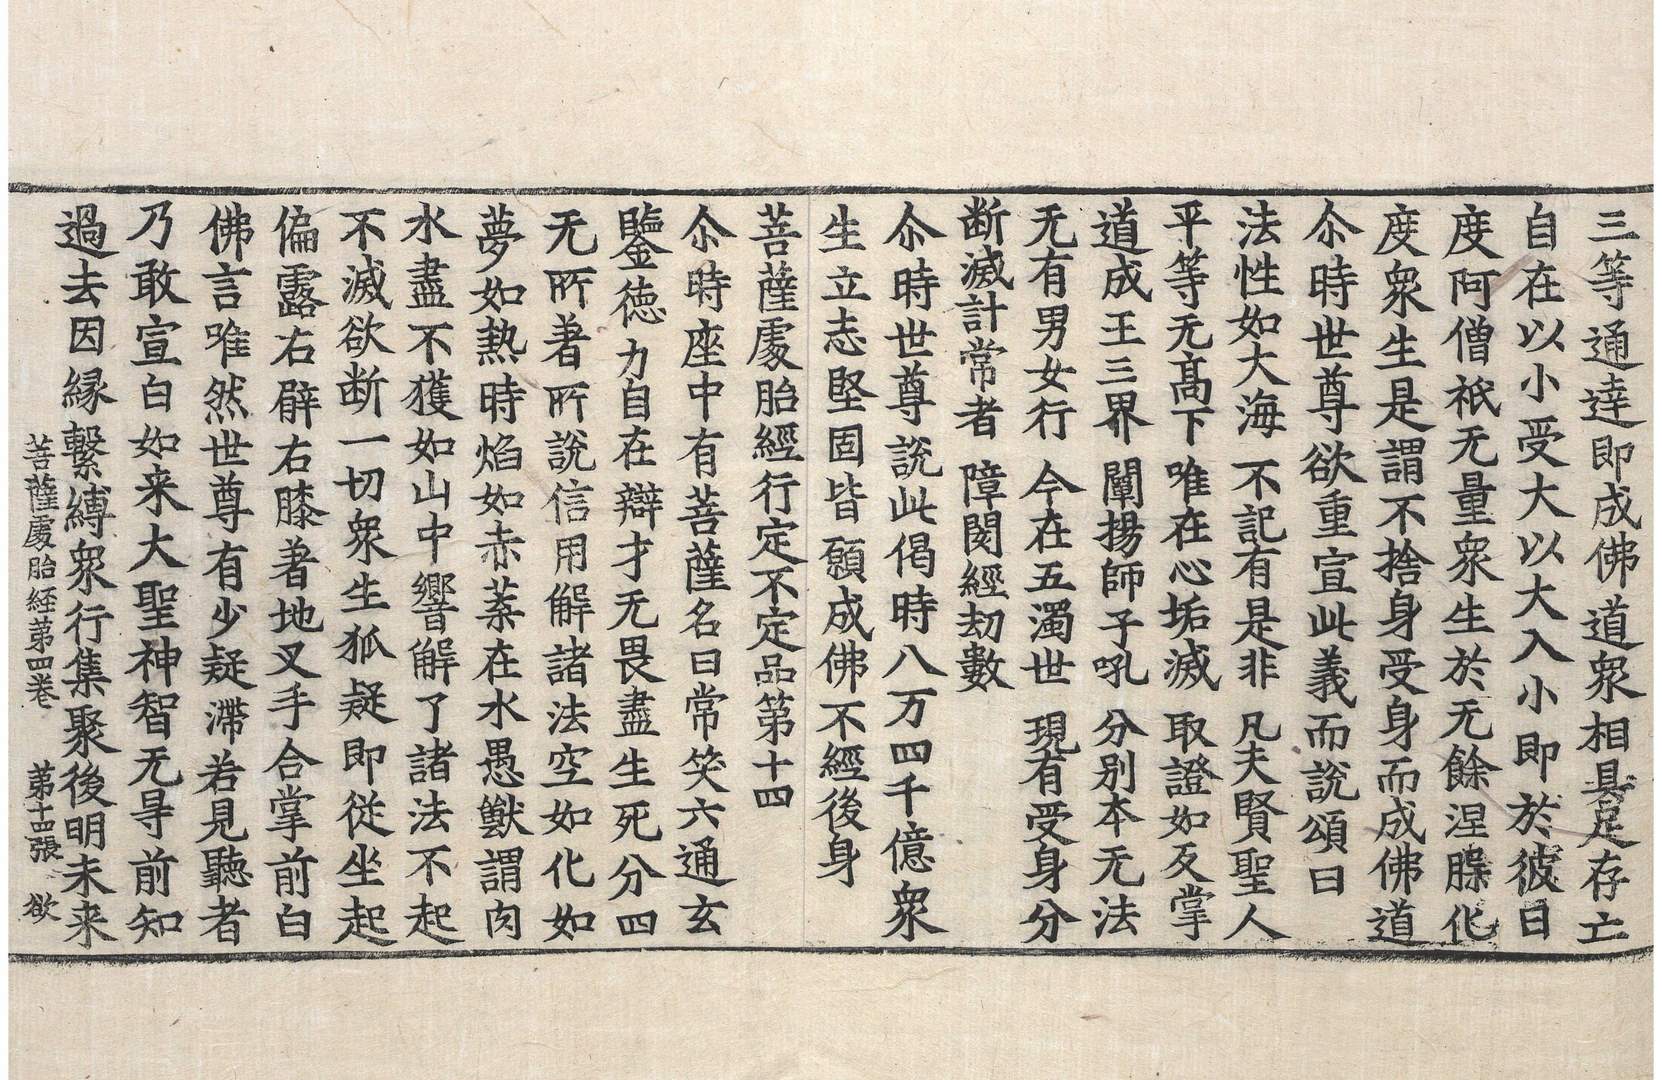 三等通達即成佛道衆相具足存亡
自在以小受大以大入小即於彼日
度阿僧祇无量衆生於无餘涅槃化
度衆生是謂不捨身受身而成佛道
尒時世尊欲重宣此義而說頌曰
法性如大海 不記有是非 凡夫賢聖人
平等无髙下 唯在心垢滅 取證如反掌
道成王三界 闡揚師子吼 分別本无法
无有男女行 今在五濁世 現有受身分
断滅計常者 障閡經劫數
尒時世尊說此偈時八万四千億衆
生立志堅固皆願成佛不經後身
菩薩處胎經行定不定品第十四
尒時座中有菩薩名曰常笑六通玄
鑒徳力自在辯才无畏盡生死分四
无所著所說信用解諸法空如化如
夢如熱時焰如赤葇在水愚獸謂肉
水盡不獲如山中響解了諸法不起
不滅欲断一切衆生狐疑即從坐起
偏露右臂右膝著地叉手合掌前白
佛言唯然世尊有少疑滯若見聽者
乃敢宣白如来大聖神智无㝵前知
過去因縁繫縛衆行集聚後明未来
菩薩處胎経第四卷 第十四張 欲